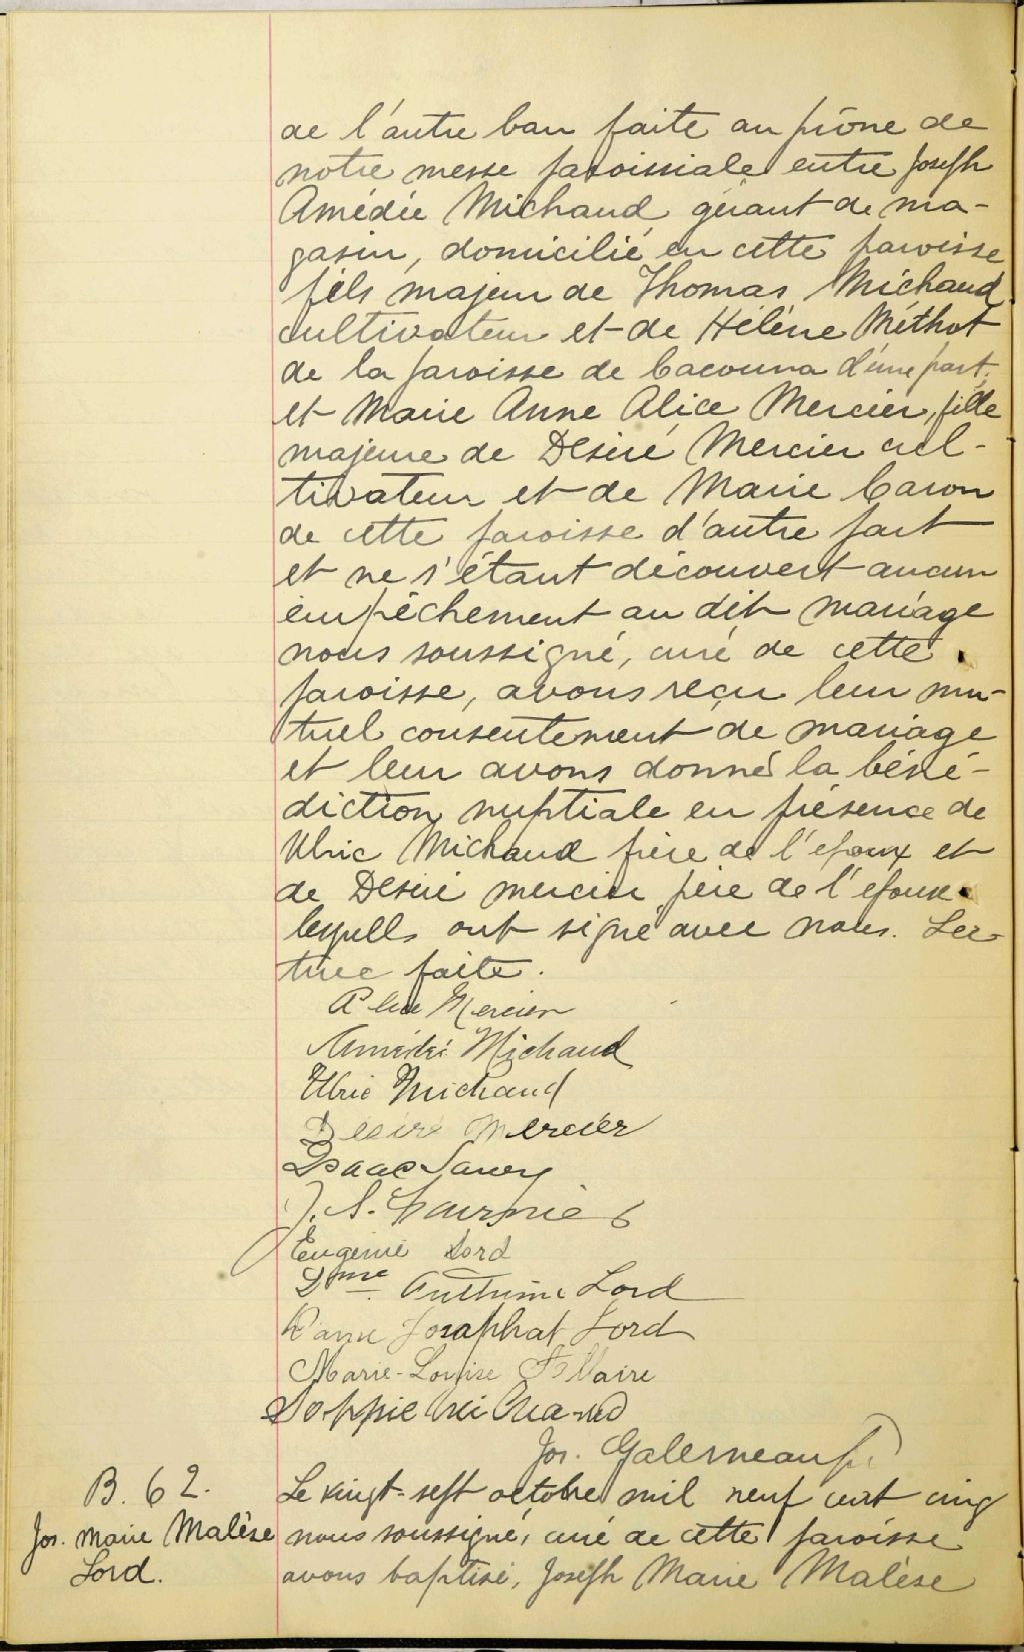 de l'autre ban faite au prône de
notre messe paroissiale entre Joseph
Amédée Michaud, gérant de ma-
gasin, domicilié en cette paroisse
fils majeur de Thomas Michaud
cultivateur et de Hélène Méthot
de la paroisse de Cacouna d'une part,
et Marie Anne Alice Mercier, fille
majeure de Désiré Mercier cul-
tivateur et de Marie Caron
de cette paroisse d'autre part
et ne s'étant découvert aucun
empêchement au dit mariage
nous soussigné, curé de cette
paroisse, avons reçu leur mu-
tuel consentement de mariage
et leur avons donné la béné-
diction nuptiale en présence de
Ulric Michaud frère de l'époux et
de Désiré Mercier père de l'épouse
lesquells ont signé avec nous. Lec-
ture faite.
Alice Mercier
Amédée Michaud
Ulric Michaud
Desiré Mercier
Isaac
J. S. Fournier
Eugénie Lord
Dme Anthime Lord
Dame Josaphat Lord
Marie-Louise
Jos. Galerneau ptr
B. 62.
Jos. Marie Malèse
Lord.
Le vingt-sept octobre mil neuf cent cinq
nous soussigné, curé de cette paroisse
avons baptisé, Joseph Marie Malèse